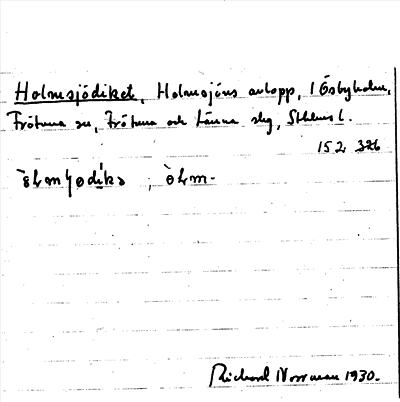 Holmsjödiket, Holmsjöns avlopp, i Ösbyholm,
Frötuna sn, Frötuna och Länna slg, Sthlms l.
152 326
òlmʃødi̇̀kə, òlm-
Richard Norrman 1930.